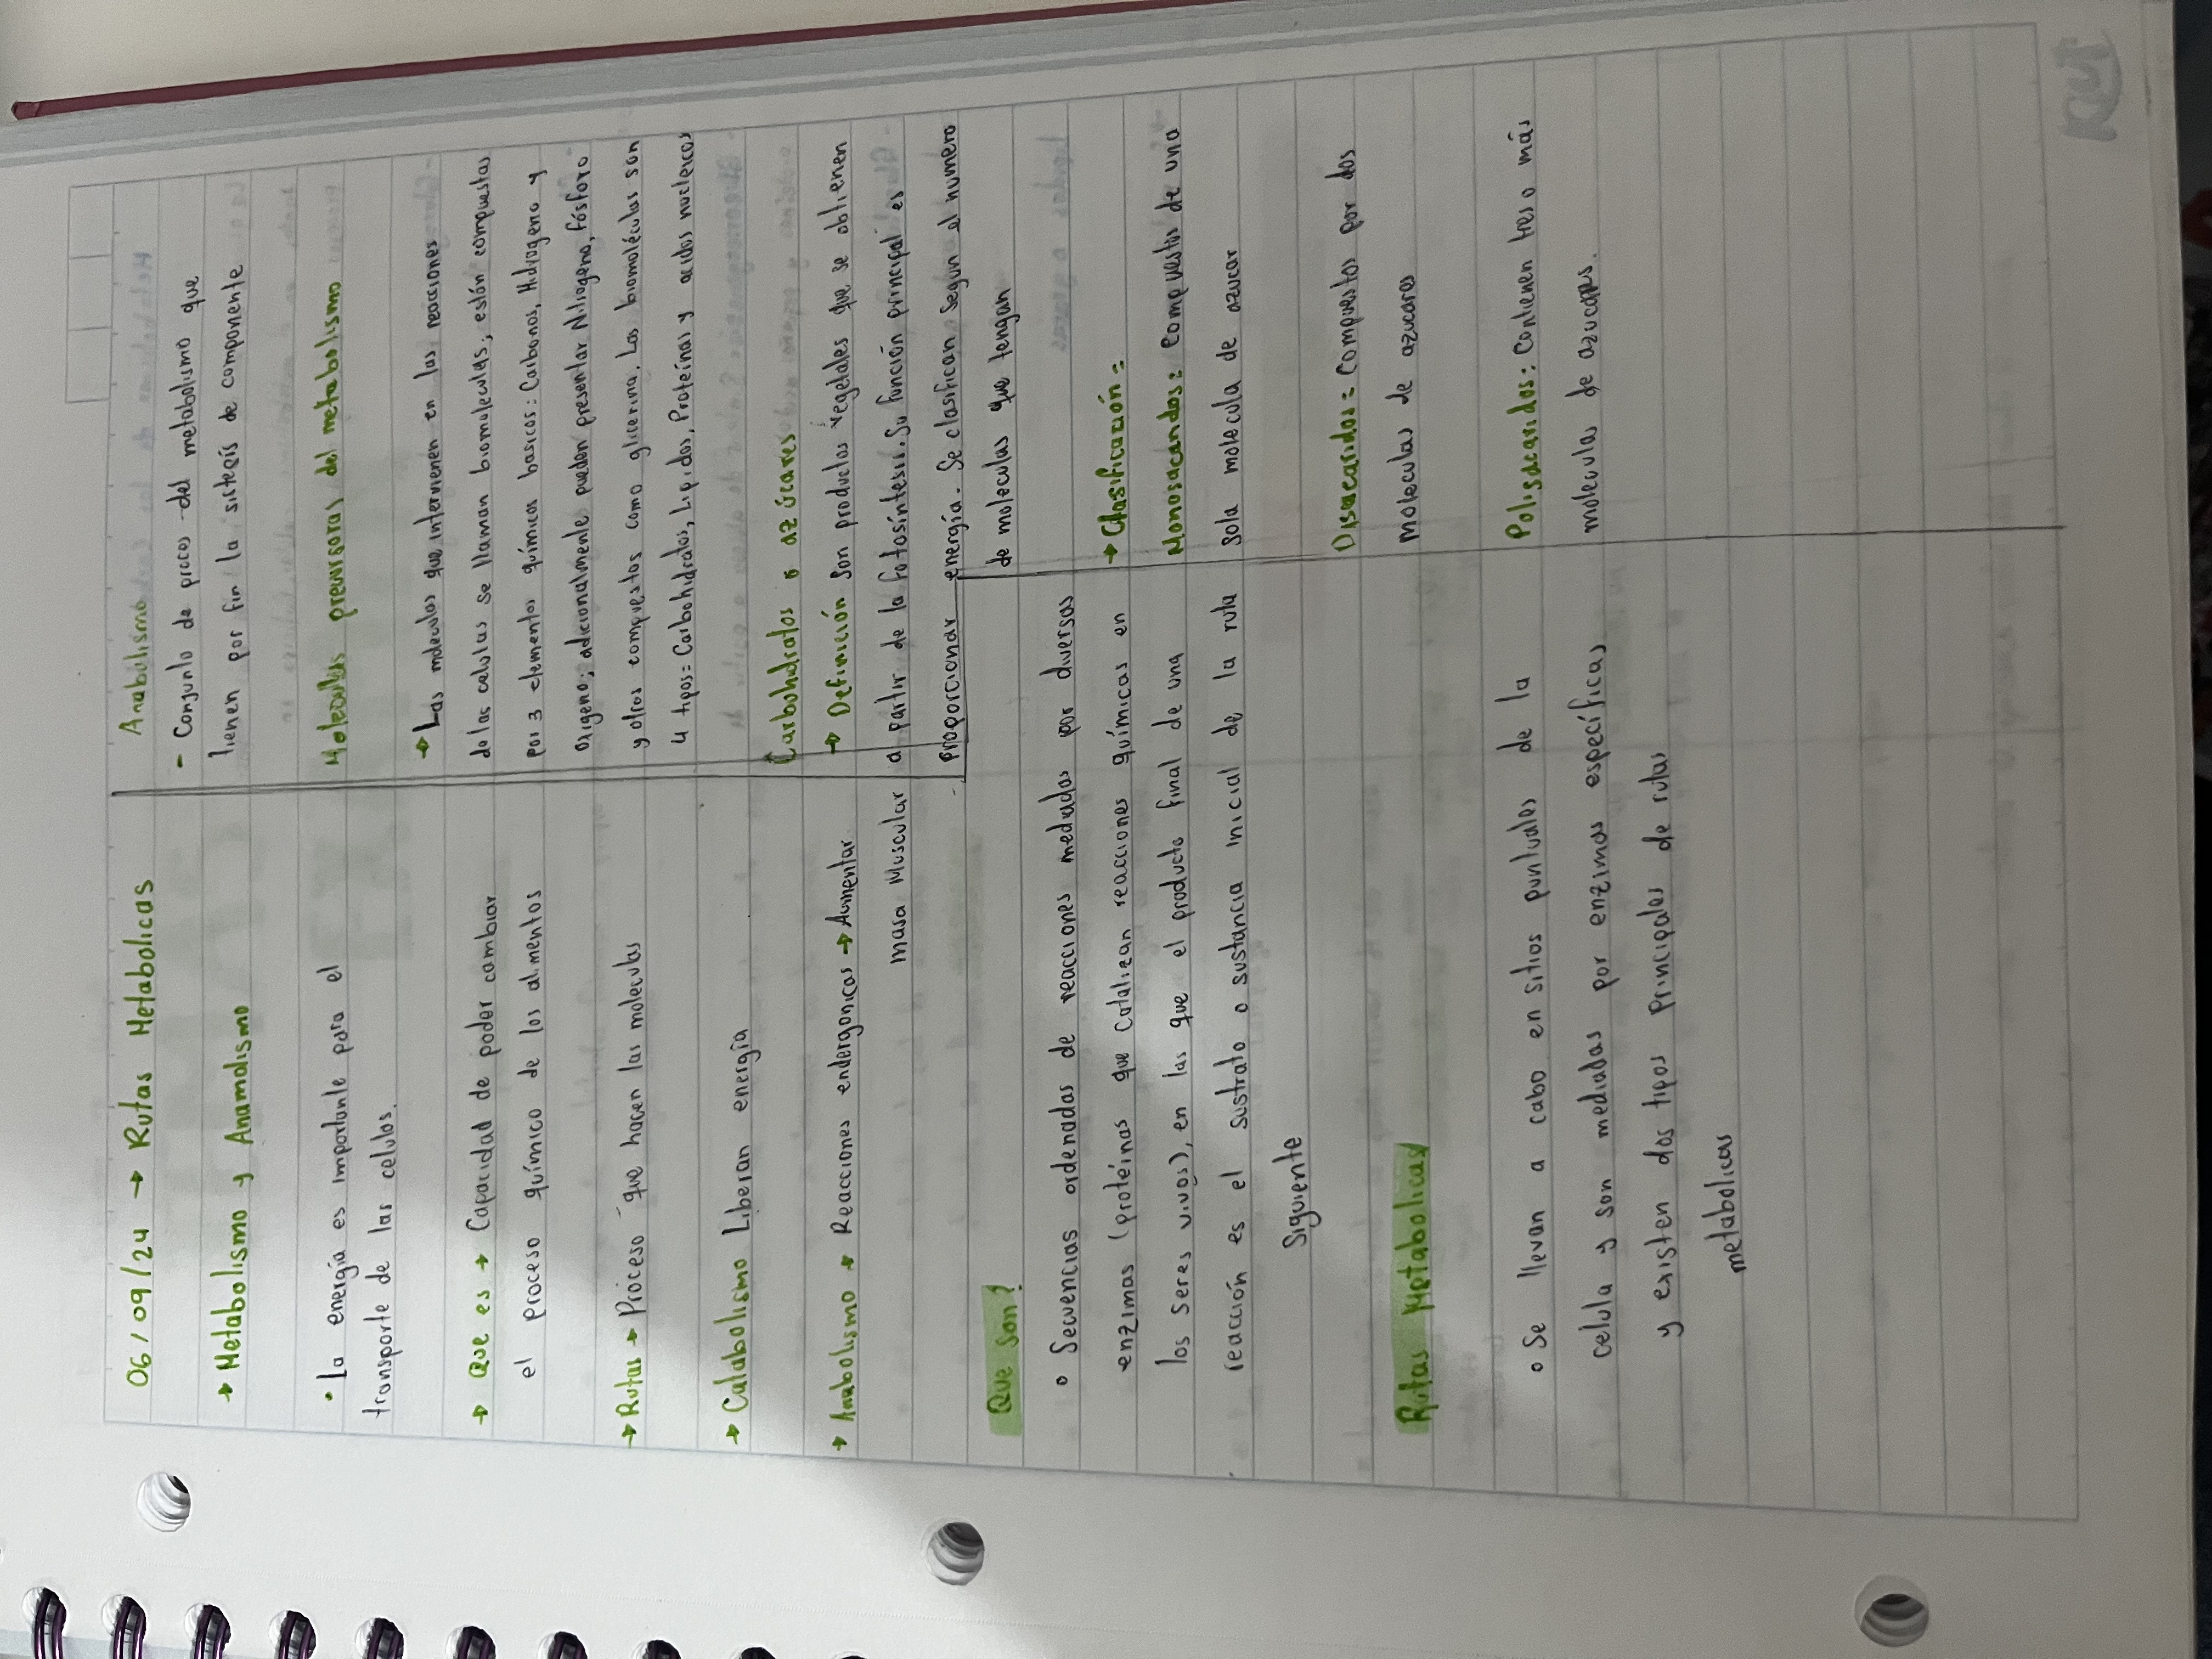 06/09/24 → Rutas Metabolicas
→ Metabolismo y Anamolismo
• La energía es importante para el
transporte de las celulas.
→ Que es → Capacidad de poder cambiar
el proceso químico de los alimentos
→ Rutas → Proceso que hacen las moleculas
→ Catabolismo Liberan energía
→ Anabolismo → Reacciones endergonicas → Aumentar
masa Muscular
Que son?
° Secuencias ordenadas de reacciones mediadas por diversas
enzimas (proteínas que catalizan reacciones químicas en
los seres vivos), en las que el producto final de una
reacción es el sustrato o sustancia inicial de la ruta
Siguiente
Rutas Metabolicas
° Se llevan a cabo en sitios puntuales de la
celula y son mediadas por enzimas específicas
y existen dos tipos principales de rutas
metabolicas
Anabolismo
- Conjunto de proces del metabolismo que
tienen por fin la sisteeis de componente
Moleculas precursoras del metabolismo
→ Las moleculas que intervienen en las reacciones
de las celulas se llaman biomoleculas; están compuestas
por 3 elementos químicos basicos: Carbonos, Hidrogeno y
oxigeno; adicionalmente pueden presentar Nitrogeno, fósforo
y otros compuestos como glicerina. Las biomoléculas son
4 tipos: Carbohidratos, Lipidos, Proteínas y acidos nucleicos
Carbohidratos o azúcares
→ Definición Son productos vegetales que se obtienen
a partir de la fotosíntesis. Su función principal es
proporcionar energía. Se clasifican segun el numero
de moleculas que tengan
→ Clasificación:
Monosacaridos: Compuestos de una
sola molecula de azucar
Disacaridos: Compuestos por dos
moleculas de azucares
Polisacaridos: Contienen tres o más
moleculas de azucares.
Kiut